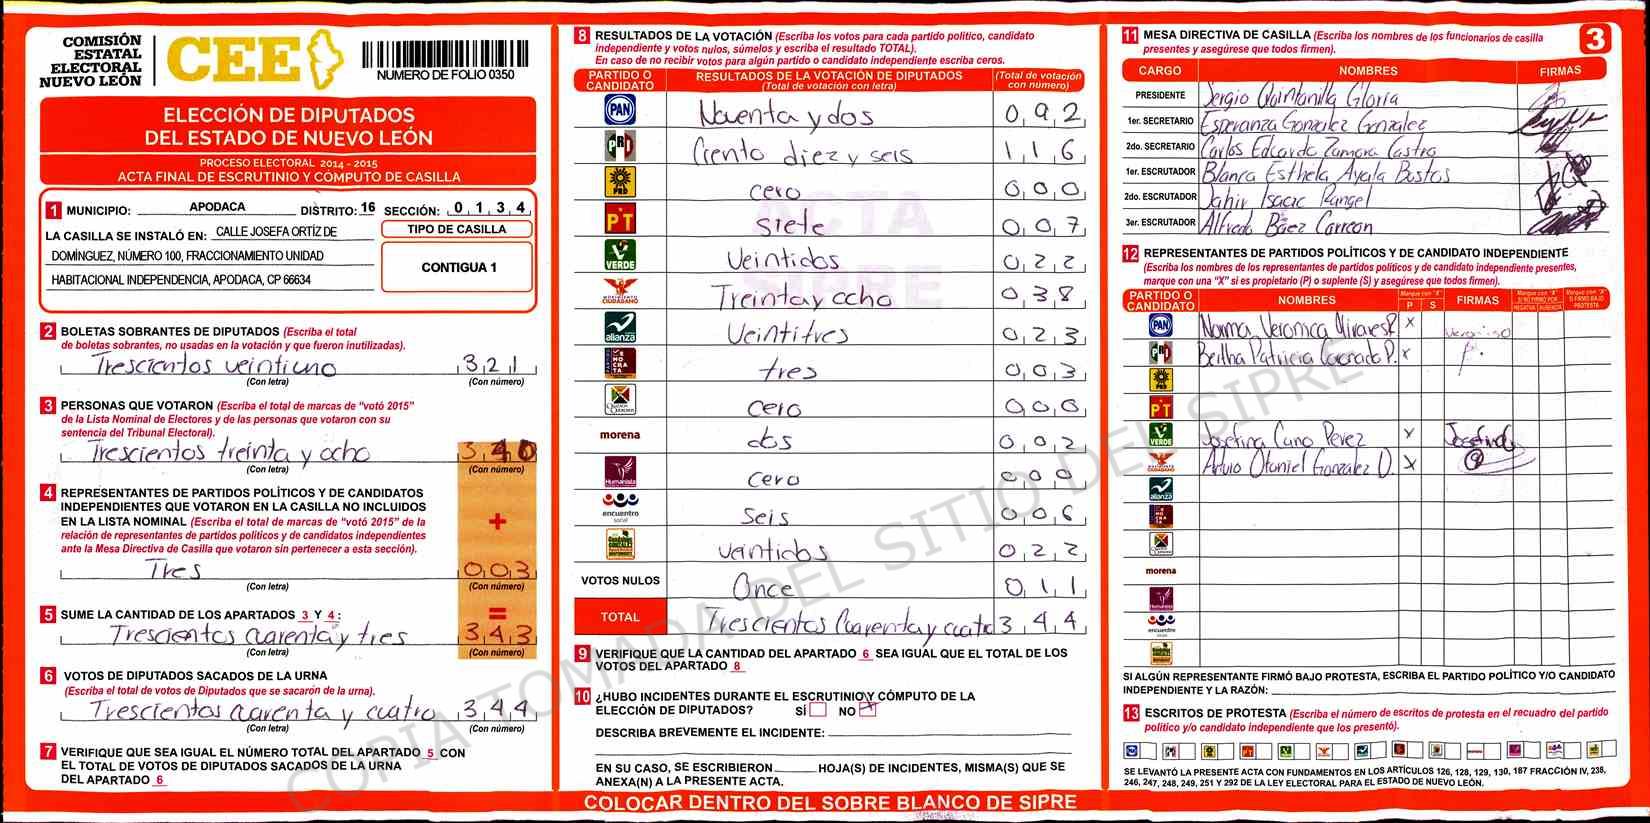 COMISIÓN
ESTATAL
ELECTORAL
NUEVO LEÓN
CEE
NUMERO DE FOLIO 0350
ELECCIÓN DE DIPUTADOS
DEL ESTADO DE NUEVO LEÓN
PROCESO ELECTORAL 2014 - 2015
ACTA FINAL DE ESCRUTINIO Y CÓMPUTO DE CASILLA
1 MUNICIPIO: APODACA DISTRITO: 16 SECCIÓN: 0 1 3 4
LA CASILLA SE INSTALÓ EN: CALLE JOSEFA ORTÍZ DE
DOMÍNGUEZ, NÚMERO 100, FRACCIONAMIENTO UNIDAD
HABITACIONAL INDEPENDENCIA, APODACA, CP 66634
TIPO DE CASILLA
CONTIGUA 1
2 BOLETAS SOBRANTES DE DIPUTADOS (Escriba el total
de boletas sobrantes, no usadas en la votación y que fueron inutilizadas).
Trescientos veintiuno 3 2 1
(Con letra) (Con número)
3 PERSONAS QUE VOTARON (Escriba el total de marcas de "votó 2015"
de la Lista Nominal de Electores y de las personas que votaron con su
sentencia del Tribunal Electoral).
Trescientos treinta y ocho 3 4 0
(Con letra) (Con número)
4 REPRESENTANTES DE PARTIDOS POLÍTICOS Y DE CANDIDATOS
INDEPENDIENTES QUE VOTARON EN LA CASILLA NO INCLUIDOS
EN LA LISTA NOMINAL (Escriba el total de marcas de "votó 2015" de la
relación de representantes de partidos políticos y de candidatos independientes
ante la Mesa Directiva de Casilla que votaron sin pertenecer a esta sección).
+
Tres 0 0 3
(Con letra) (Con número)
5 SUME LA CANTIDAD DE LOS APARTADOS 3 Y 4 : =
Trescientos cuarenta y tres 3 4 3
(Con letra) (Con número)
6 VOTOS DE DIPUTADOS SACADOS DE LA URNA
(Escriba el total de votos de Diputados que se sacarón de la urna).
Trescientos cuarenta y cuatro 3 4 4
(Con letra) (Con número)
7 VERIFIQUE QUE SEA IGUAL EL NÚMERO TOTAL DEL APARTADO 5 CON
EL TOTAL DE VOTOS DE DIPUTADOS SACADOS DE LA URNA
DEL APARTADO 6
8 RESULTADOS DE LA VOTACIÓN (Escriba los votos para cada partido político, candidato
independiente y votos nulos, súmelos y escriba el resultado TOTAL).
En caso de no recibir votos para algún partido o candidato independiente escriba ceros.
PARTIDO O CANDIDATO RESULTADOS DE LA VOTACIÓN DE DIPUTADOS (Total de votación con letra) (Total de votación con número)
PAN Noventa y dos 0 9 2
PRD Ciento diez y seis 1 1 6
PRD cero 0 0 0
PT siete 0 0 7
VERDE Veintidos 0 2 2
MOVIMIENTO CIUDADANO Treinta y ocho 0 3 8
alianza Veintitres 0 2 3
DEMOCRATA tres 0 0 3
Cero 0 0 0
morena dos 0 0 2
Humanista Cero 0 0 0
encuentro social Seis 0 0 6
veintidos 0 2 2
VOTOS NULOS Once 0 1 1
TOTAL Trescientos Cuarenta y cuatro 3 4 4
ACTA
SIPRE
9 VERIFIQUE QUE LA CANTIDAD DEL APARTADO 6 SEA IGUAL QUE EL TOTAL DE LOS
VOTOS DEL APARTADO 8
10 ¿HUBO INCIDENTES DURANTE EL ESCRUTINIO Y CÓMPUTO DE LA
ELECCIÓN DE DIPUTADOS? SÍ NO X
DESCRIBA BREVEMENTE EL INCIDENTE:
EN SU CASO, SE ESCRIBIERON HOJA(S) DE INCIDENTES, MISMA(S) QUE SE
ANEXA(N) A LA PRESENTE ACTA.
11 MESA DIRECTIVA DE CASILLA (Escriba los nombres de los funcionarios de casilla
presentes y asegúrese que todos firmen).
3
CARGO NOMBRES FIRMAS
PRESIDENTE Sergio Quintanilla Gloria
1er. SECRETARIO Esperanza González González
2do. SECRETARIO Carlos Edcardo Zamora Castro
1er. ESCRUTADOR Blanca Esthela Ayala Bustos
2do. ESCRUTADOR Jahir Isaac Rangel
3er. ESCRUTADOR Alfredo Báez Carreon
12 REPRESENTANTES DE PARTIDOS POLÍTICOS Y DE CANDIDATO INDEPENDIENTE
(Escriba los nombres de los representantes de partidos políticos y de candidato independiente presentes,
marque con una "X" si es propietario (P) o suplente (S) y asegúrese que todos firmen).
PARTIDO O CANDIDATO NOMBRES Marque con "X" P S FIRMAS Marque con "X" SI NO FIRMÓ POR NEGATIVA AUSENCIA Marque con "X" SI FIRMÓ BAJO PROTESTA
PAN Norma Veronica Olivares P. X Veronica O
Bertha Patricia Coronado P. X P.
PRD
PT
VERDE Josefina Cano Perez X Josefina
Arturo Otoniel Gonzalez O. X
alianza
morena
Humanista
encuentro social
SI ALGÚN REPRESENTANTE FIRMÓ BAJO PROTESTA, ESCRIBA EL PARTIDO POLÍTICO Y/O CANDIDATO
INDEPENDIENTE Y LA RAZÓN:
13 ESCRITOS DE PROTESTA (Escriba el número de escritos de protesta en el recuadro del partido
político y/o candidato independiente que los presentó).
SE LEVANTÓ LA PRESENTE ACTA CON FUNDAMENTOS EN LOS ARTÍCULOS 126, 128, 129, 130, 187 FRACCIÓN IV, 238,
246, 247, 248, 249, 251 Y 292 DE LA LEY ELECTORAL PARA EL ESTADO DE NUEVO LEÓN.
COLOCAR DENTRO DEL SOBRE BLANCO DE SIPRE
COPIA TOMADA DEL SITIO DEL SIPRE